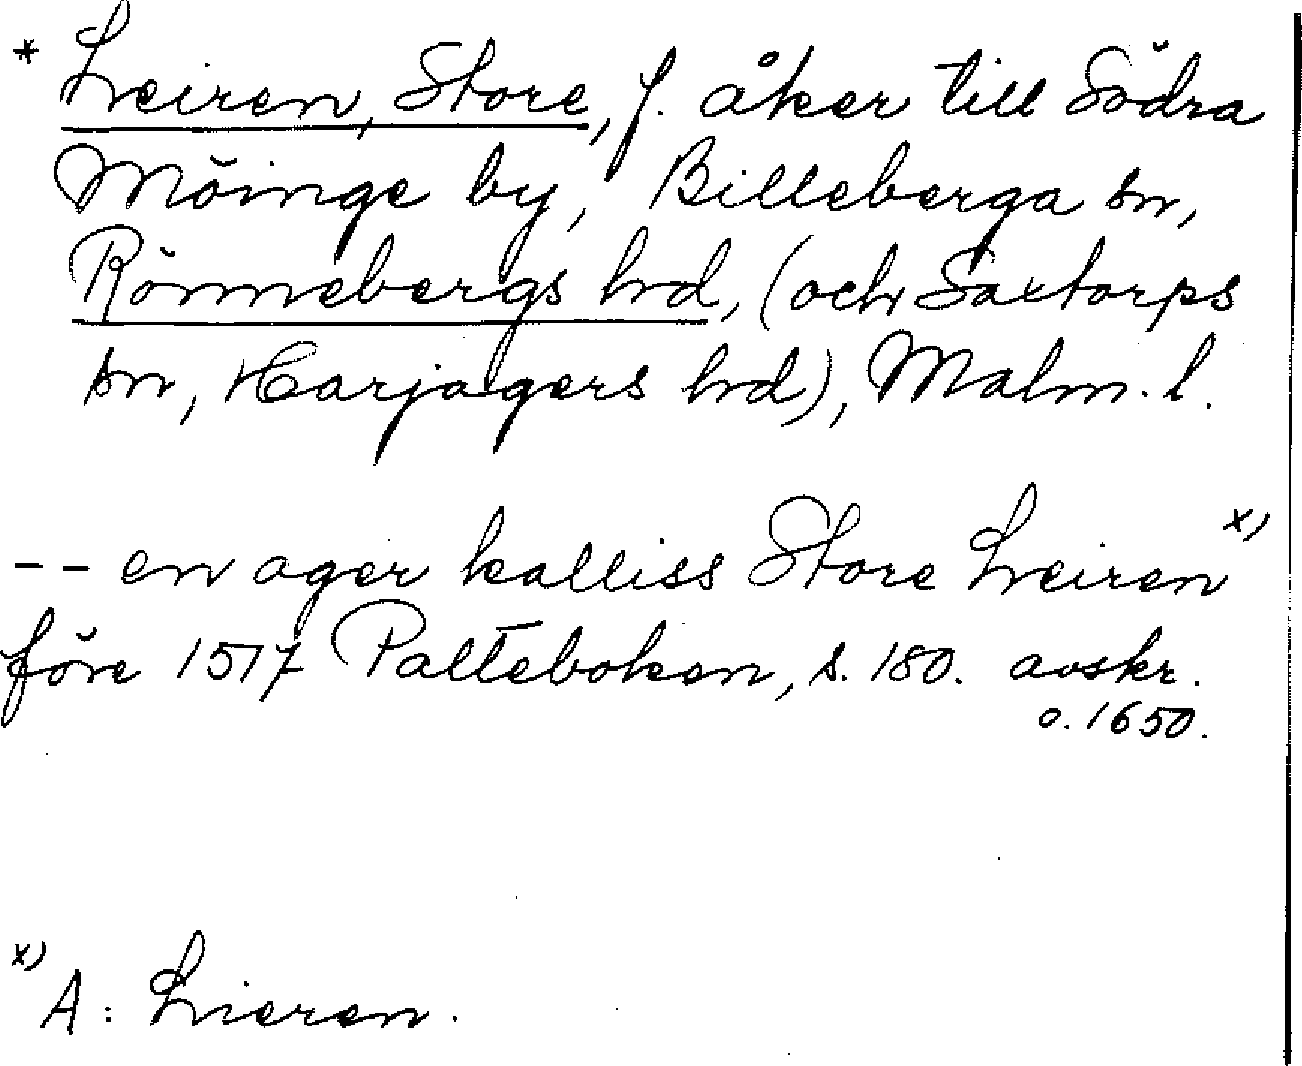 * Leiren, Store, f. åker till Södra
Möinge by, Billeberga sn,
Rönnebergs hrd, (och Saxtorps
sn, Harjagers hrd), Malm. l.
-- en ager kalliss Store Leiren x)
före 1517 Palteboken, s. 180. avskr.
o. 1650.
x) A: Lieren.